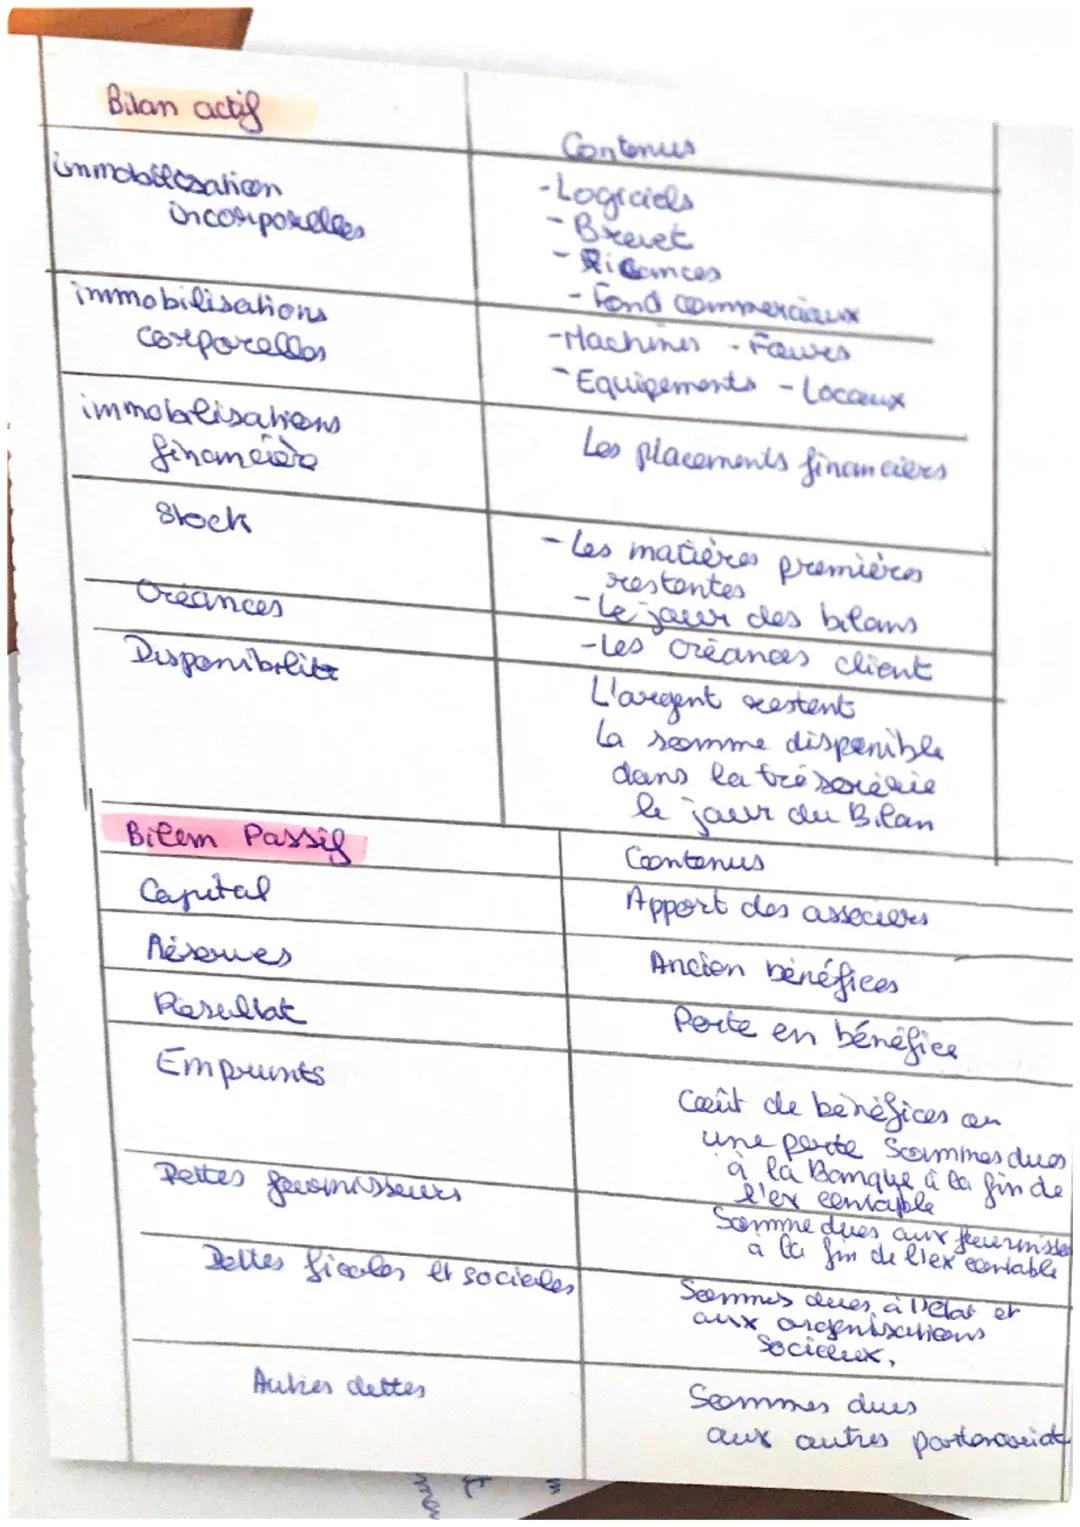 Bilan actif
Contenus
immobilisation
incorporelles
- Logiciels
- Brevet
- Licances
- Fond commerciaux
immobilisations
corporelles
- Machines - Fours
- Equipements - Locaux
immobilisations
financière
Les placements financiers
Stock
- Les matières premières
restentes
- Le jour des bilans
Créances
- Les créances client
Disponibilité
L'argent restent
La somme disponible
dans la trésorerie
le jour du Bilan
Bilan Passif
Contenus
Capital
Apport des associers
Réserves
Ancien bénéfices
Résultat
Perte en bénéfice
Emprunts
Coût de bénéfices ou
une perte Sommes dues
à la Banque à la fin de
l'ex contable
Dettes fournisseurs
Somme dues aux fournisse
à la fin de l'ex contable
Dettes ficales et sociales
Sommes dues à l'Etat et
aux organisations
Sociaux,
Autres dettes
Sommes dues
aux autres